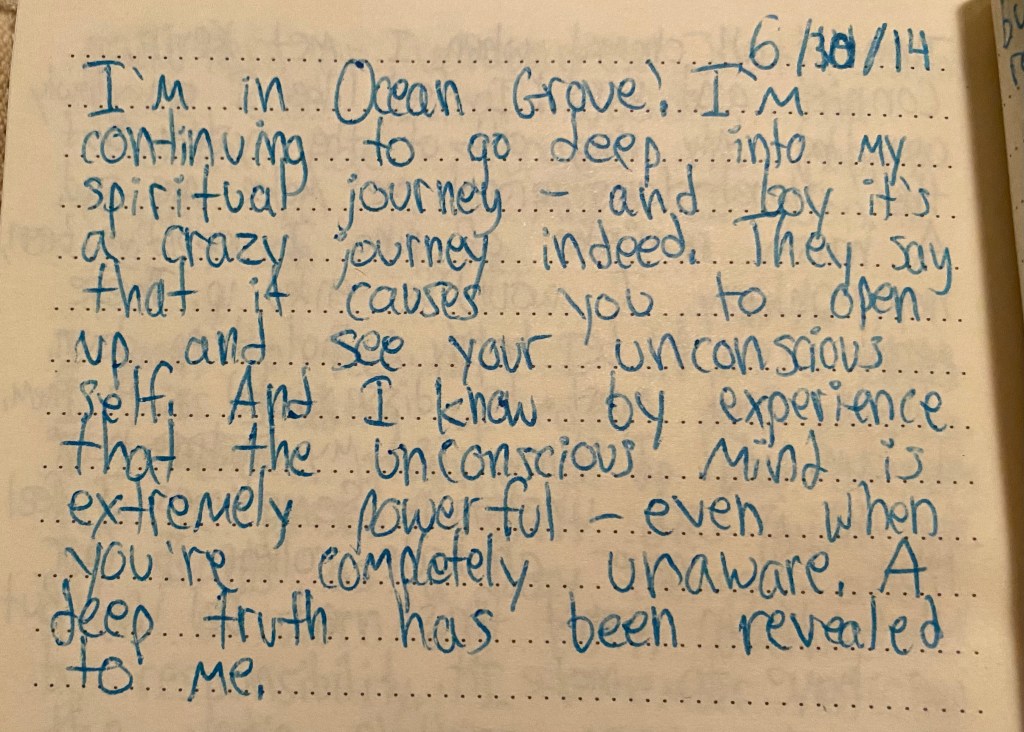 6/30/14
I'm in Ocean Grove! I'm
continuing to go deep into my
spiritual journey – and boy it's
a crazy journey indeed. They say
that it causes you to open
up and see your unconscious
self. And I know by experience
that the unconscious mind is
extremely powerful – even when
you're completely unaware. A
deep truth has been revealed
to me.